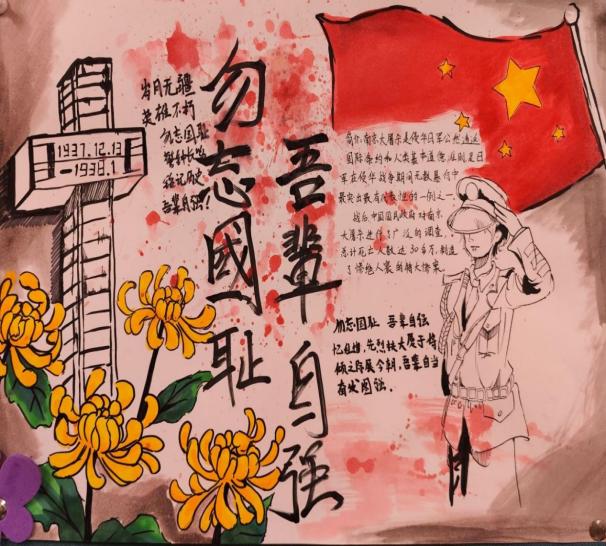 1937.12.13
-1938.1
岁月无疆
英雄不朽
勿忘国耻
警钟长鸣
铭记历史
吾辈自强!
勿忘國耻
吾辈自强
简介:南京大屠杀是侵华日军公然违反
国际条约和人类基本道德准则是日
军在侵华战争期间无数暴行中
最突出最有代表性的一例之一
战后中国国民政府对南京
大屠杀进行了广泛的调查
总计死亡人数达30多万,制造
了惨绝人寰的特大惨案
勿忘国耻 吾辈自强
忆往昔,先烈扶大厦于将
倾之际展今朝,吾辈自当
奋发图强.